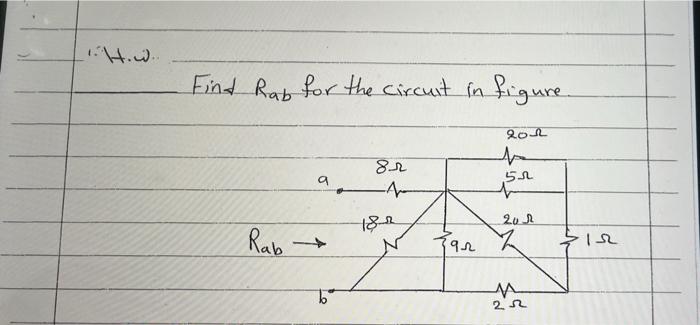 H.W.
Find Rab for the circuit in figure.
20Ω
8Ω
5Ω
a
18Ω
20Ω
Rab →
9Ω
1Ω
b
2Ω